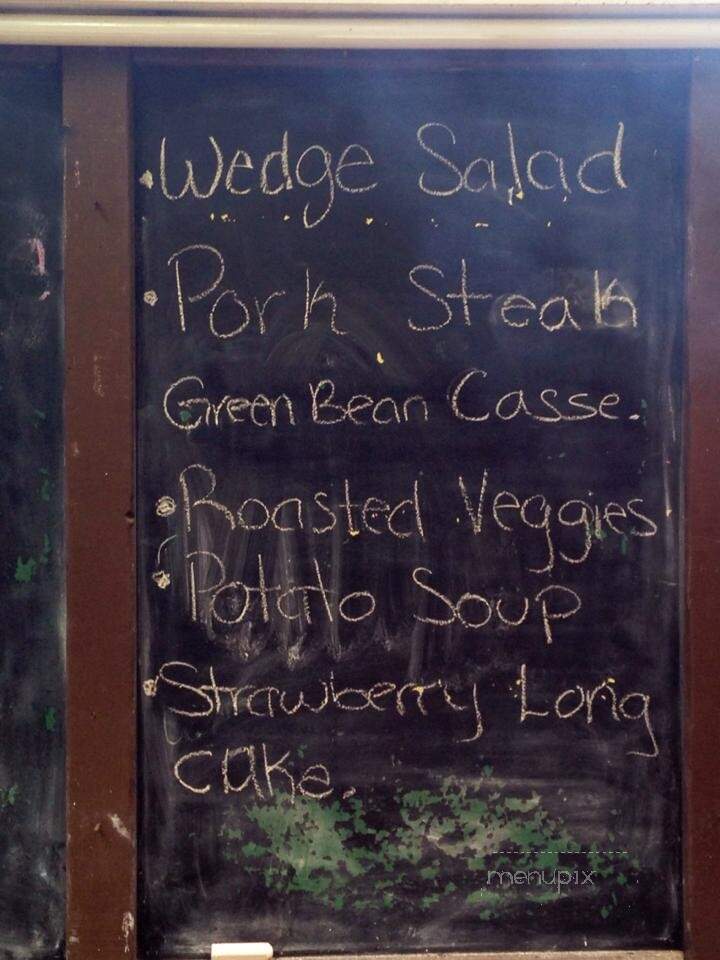 • Wedge Salad
• Pork Steak
Green Bean Casse.
• Roasted Veggies
• Potato Soup
• Strawberry Long
cake.
menupix